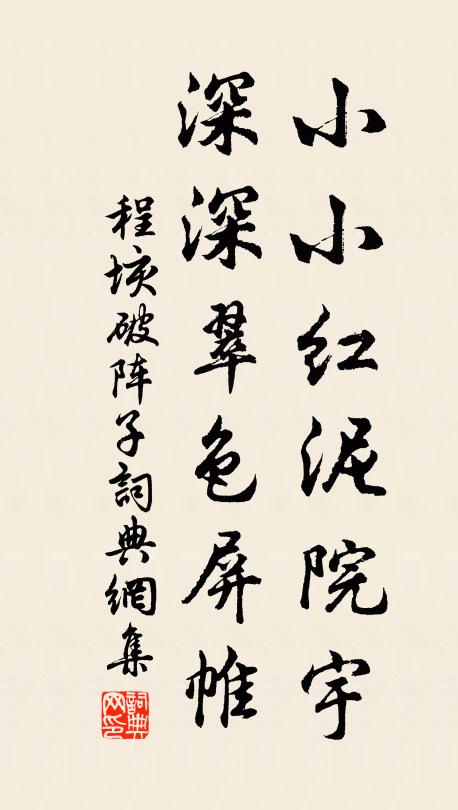 小小红泥院宇
深深翠色屏帷
程垓破阵子詞典網集
詞典网印